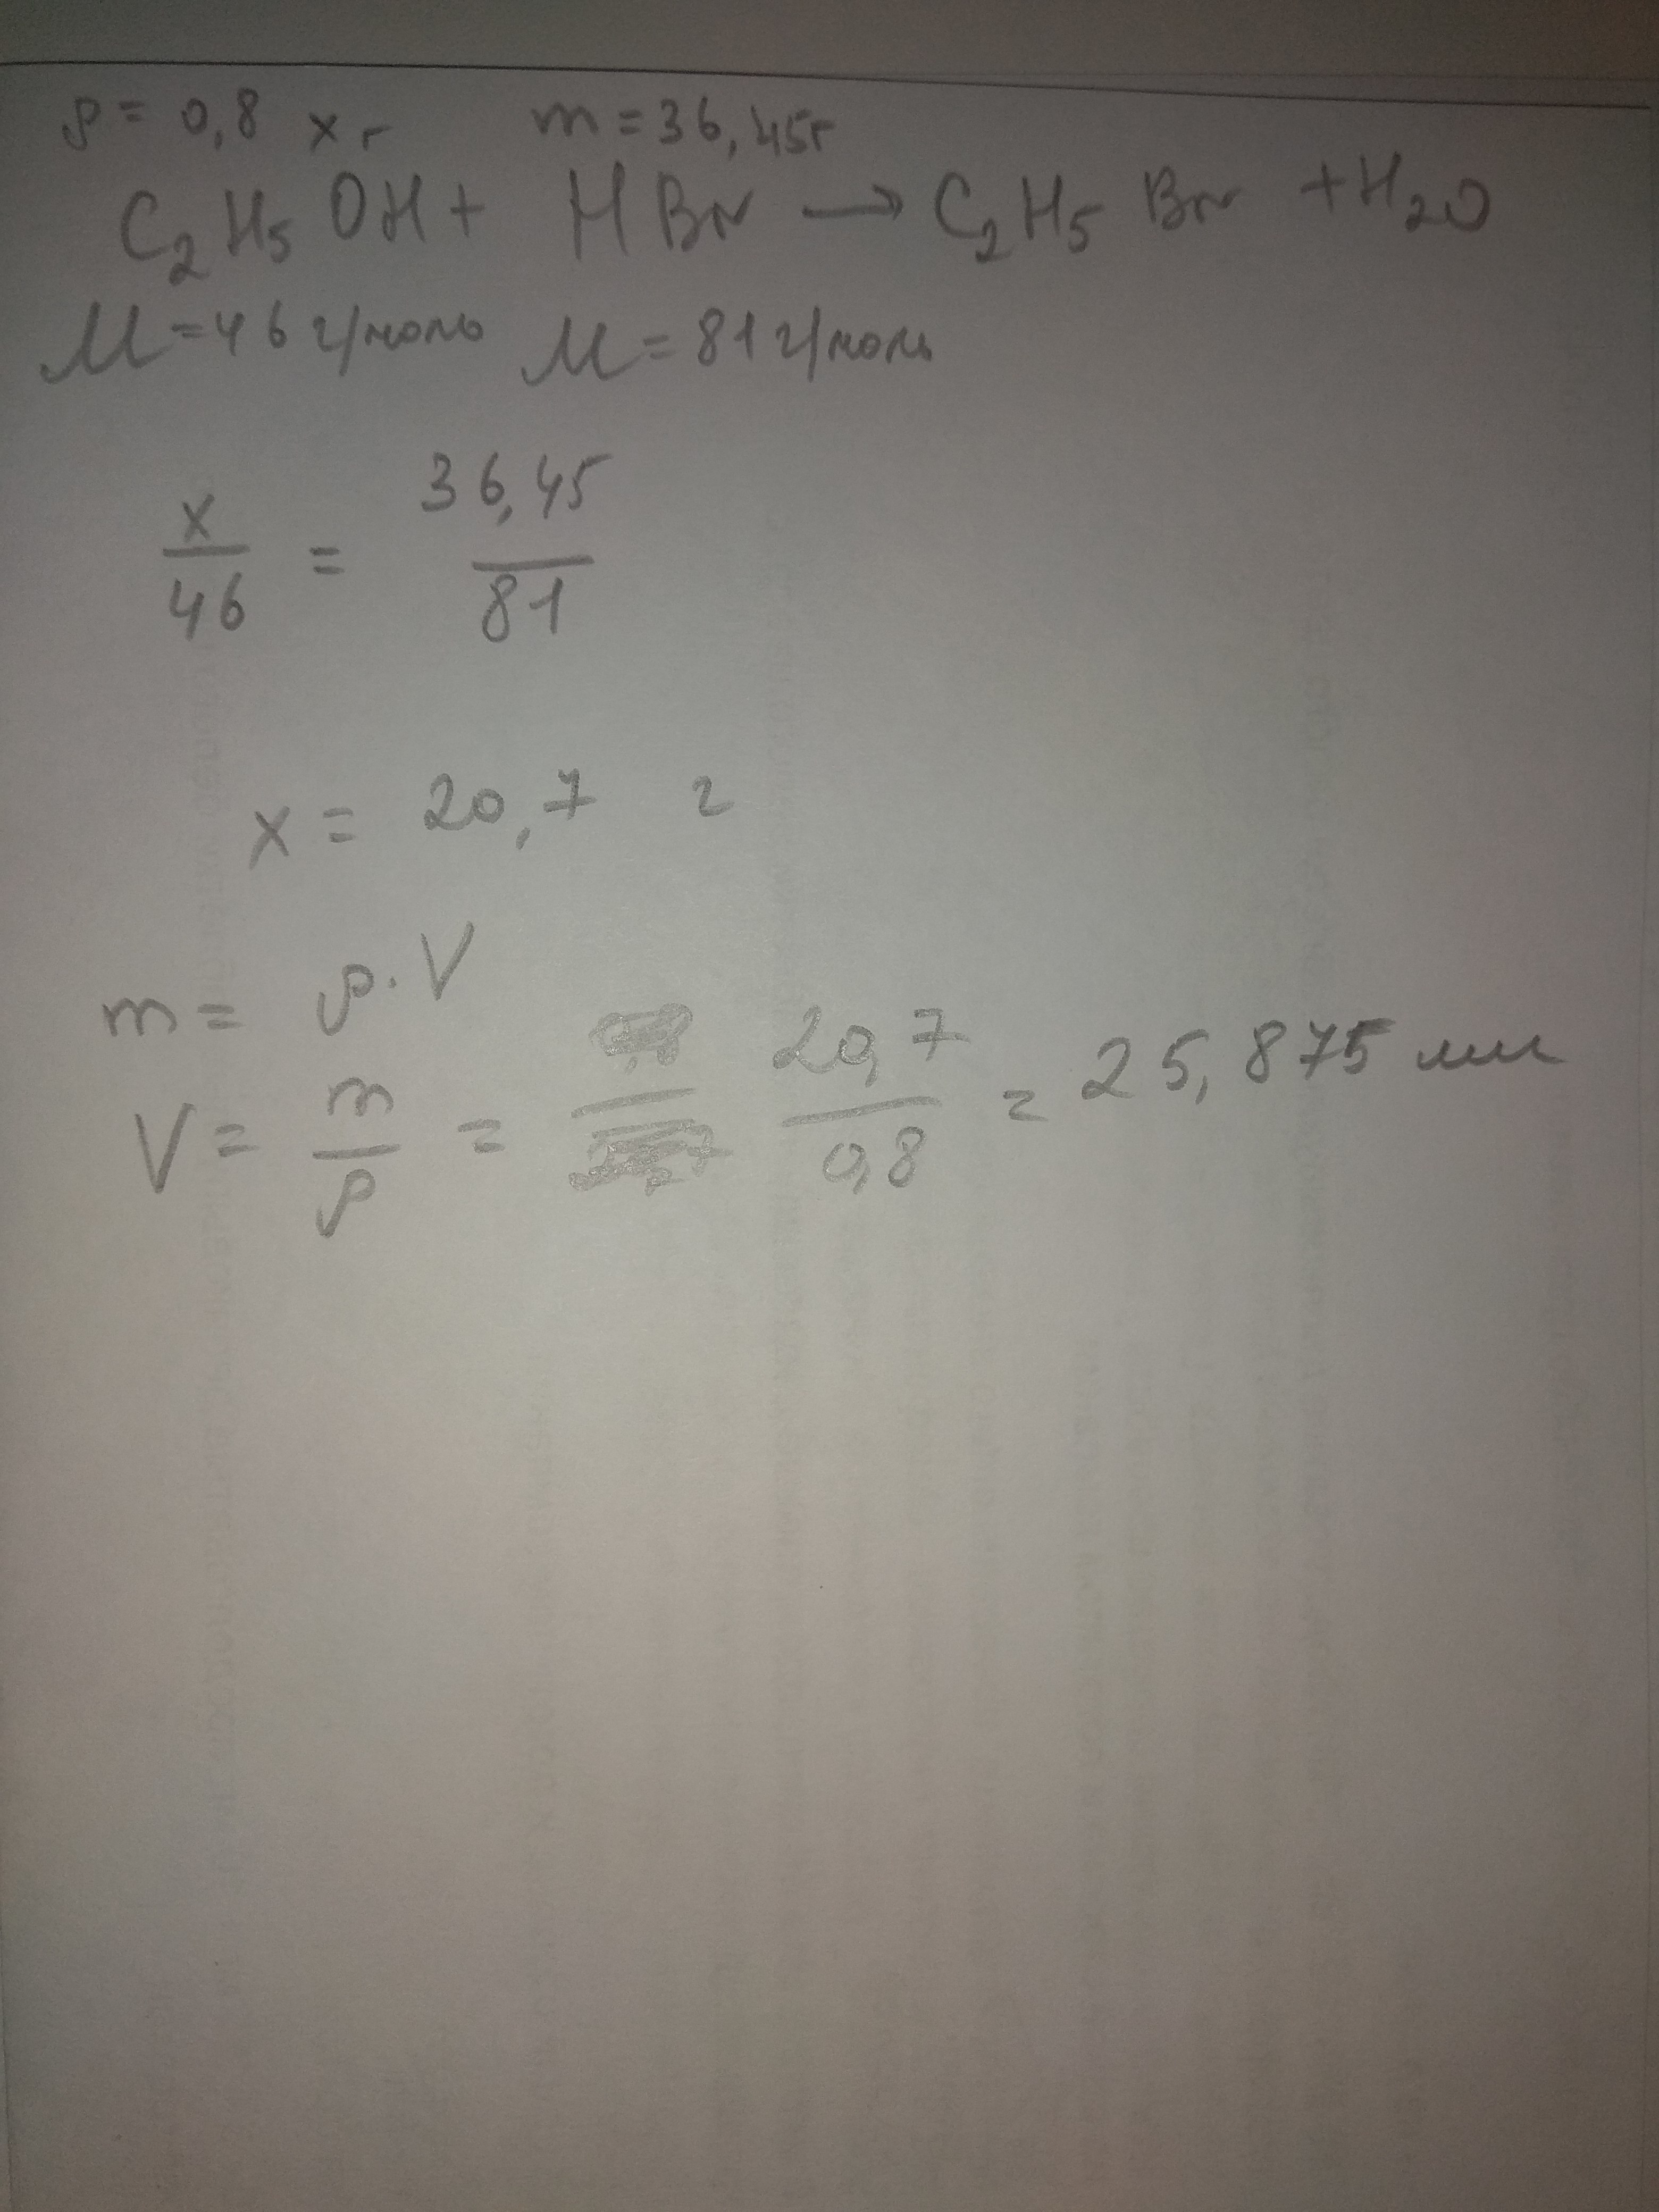 ρ = 0,8 x г m = 36,45г
C₂H₅OH + HBr → C₂H₅Br + H₂O
M = 46 г/моль M = 81 г/моль
x/46 = 36,45/81
x = 20,7 г
m = ρ · V
V = m/ρ = 20,7/0,8 = 25,875 мл